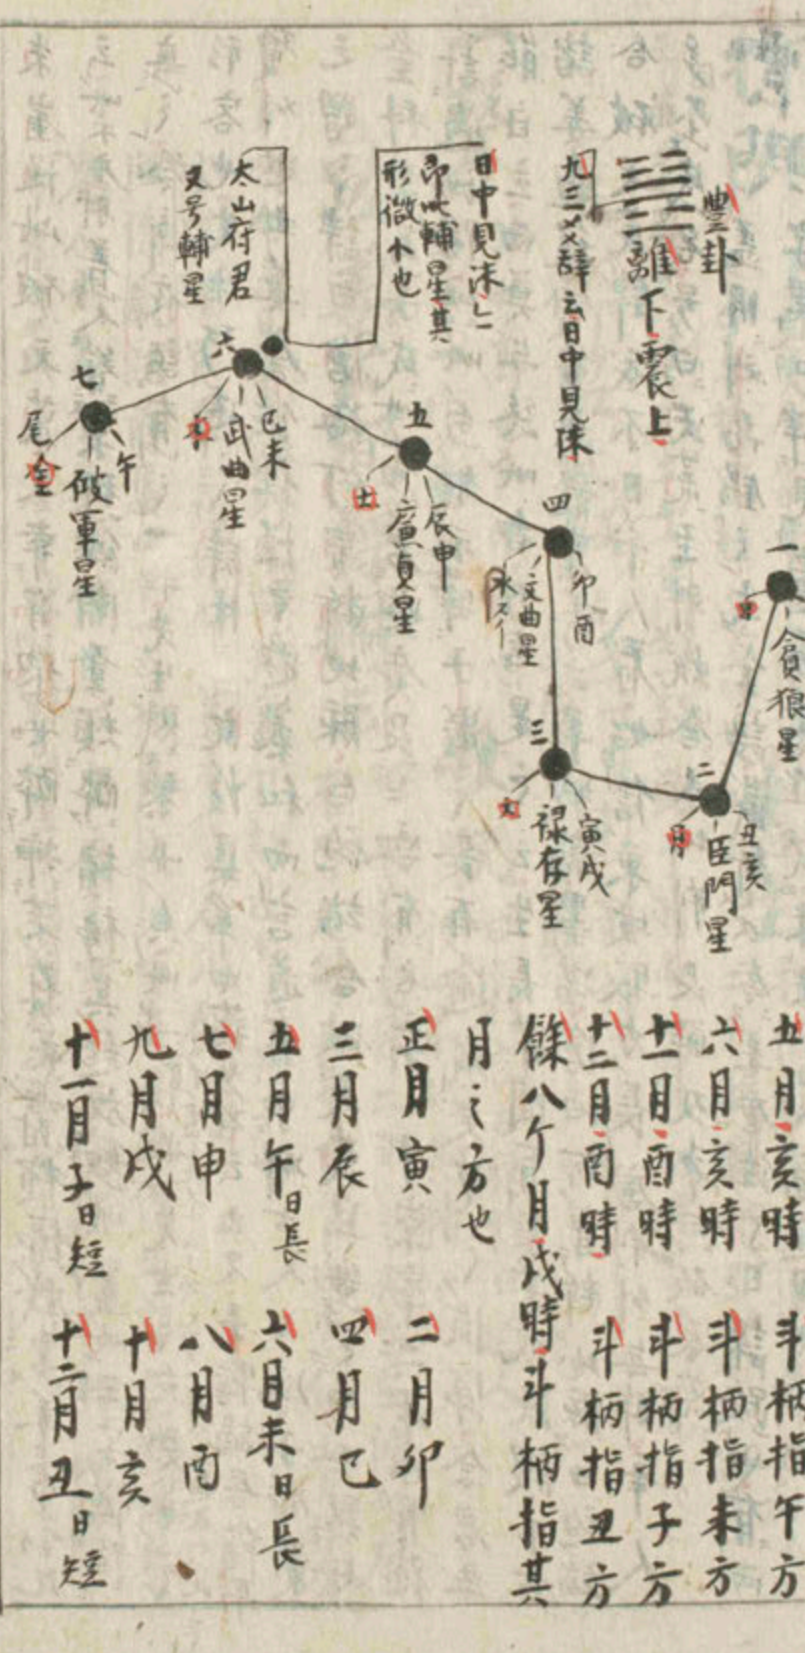 豐卦
離下震上
九三爻辞云日中見沬
日中見沬
即此輔星其
形微小也
太山府君
又号輔星
一
貪狼星
日
二
丑亥
巨門星
月
三
寅戌
禄存星
火
四
卯酉
文曲星
水
五
辰申
廉貞星
土
六
巳未
武曲星
木
七
午
破軍星
金
尾
五月亥時 斗柄指午方
六月亥時 斗柄指未方
十一月酉時 斗柄指子方
十二月酉時 斗柄指丑方
餘八ケ月戌時斗柄指其
月之方也
正月寅 二月卯
三月辰 四月巳
五月午日長 六月未日長
七月申 八月酉
九月戌 十月亥
十一月子日短 十二月丑日短